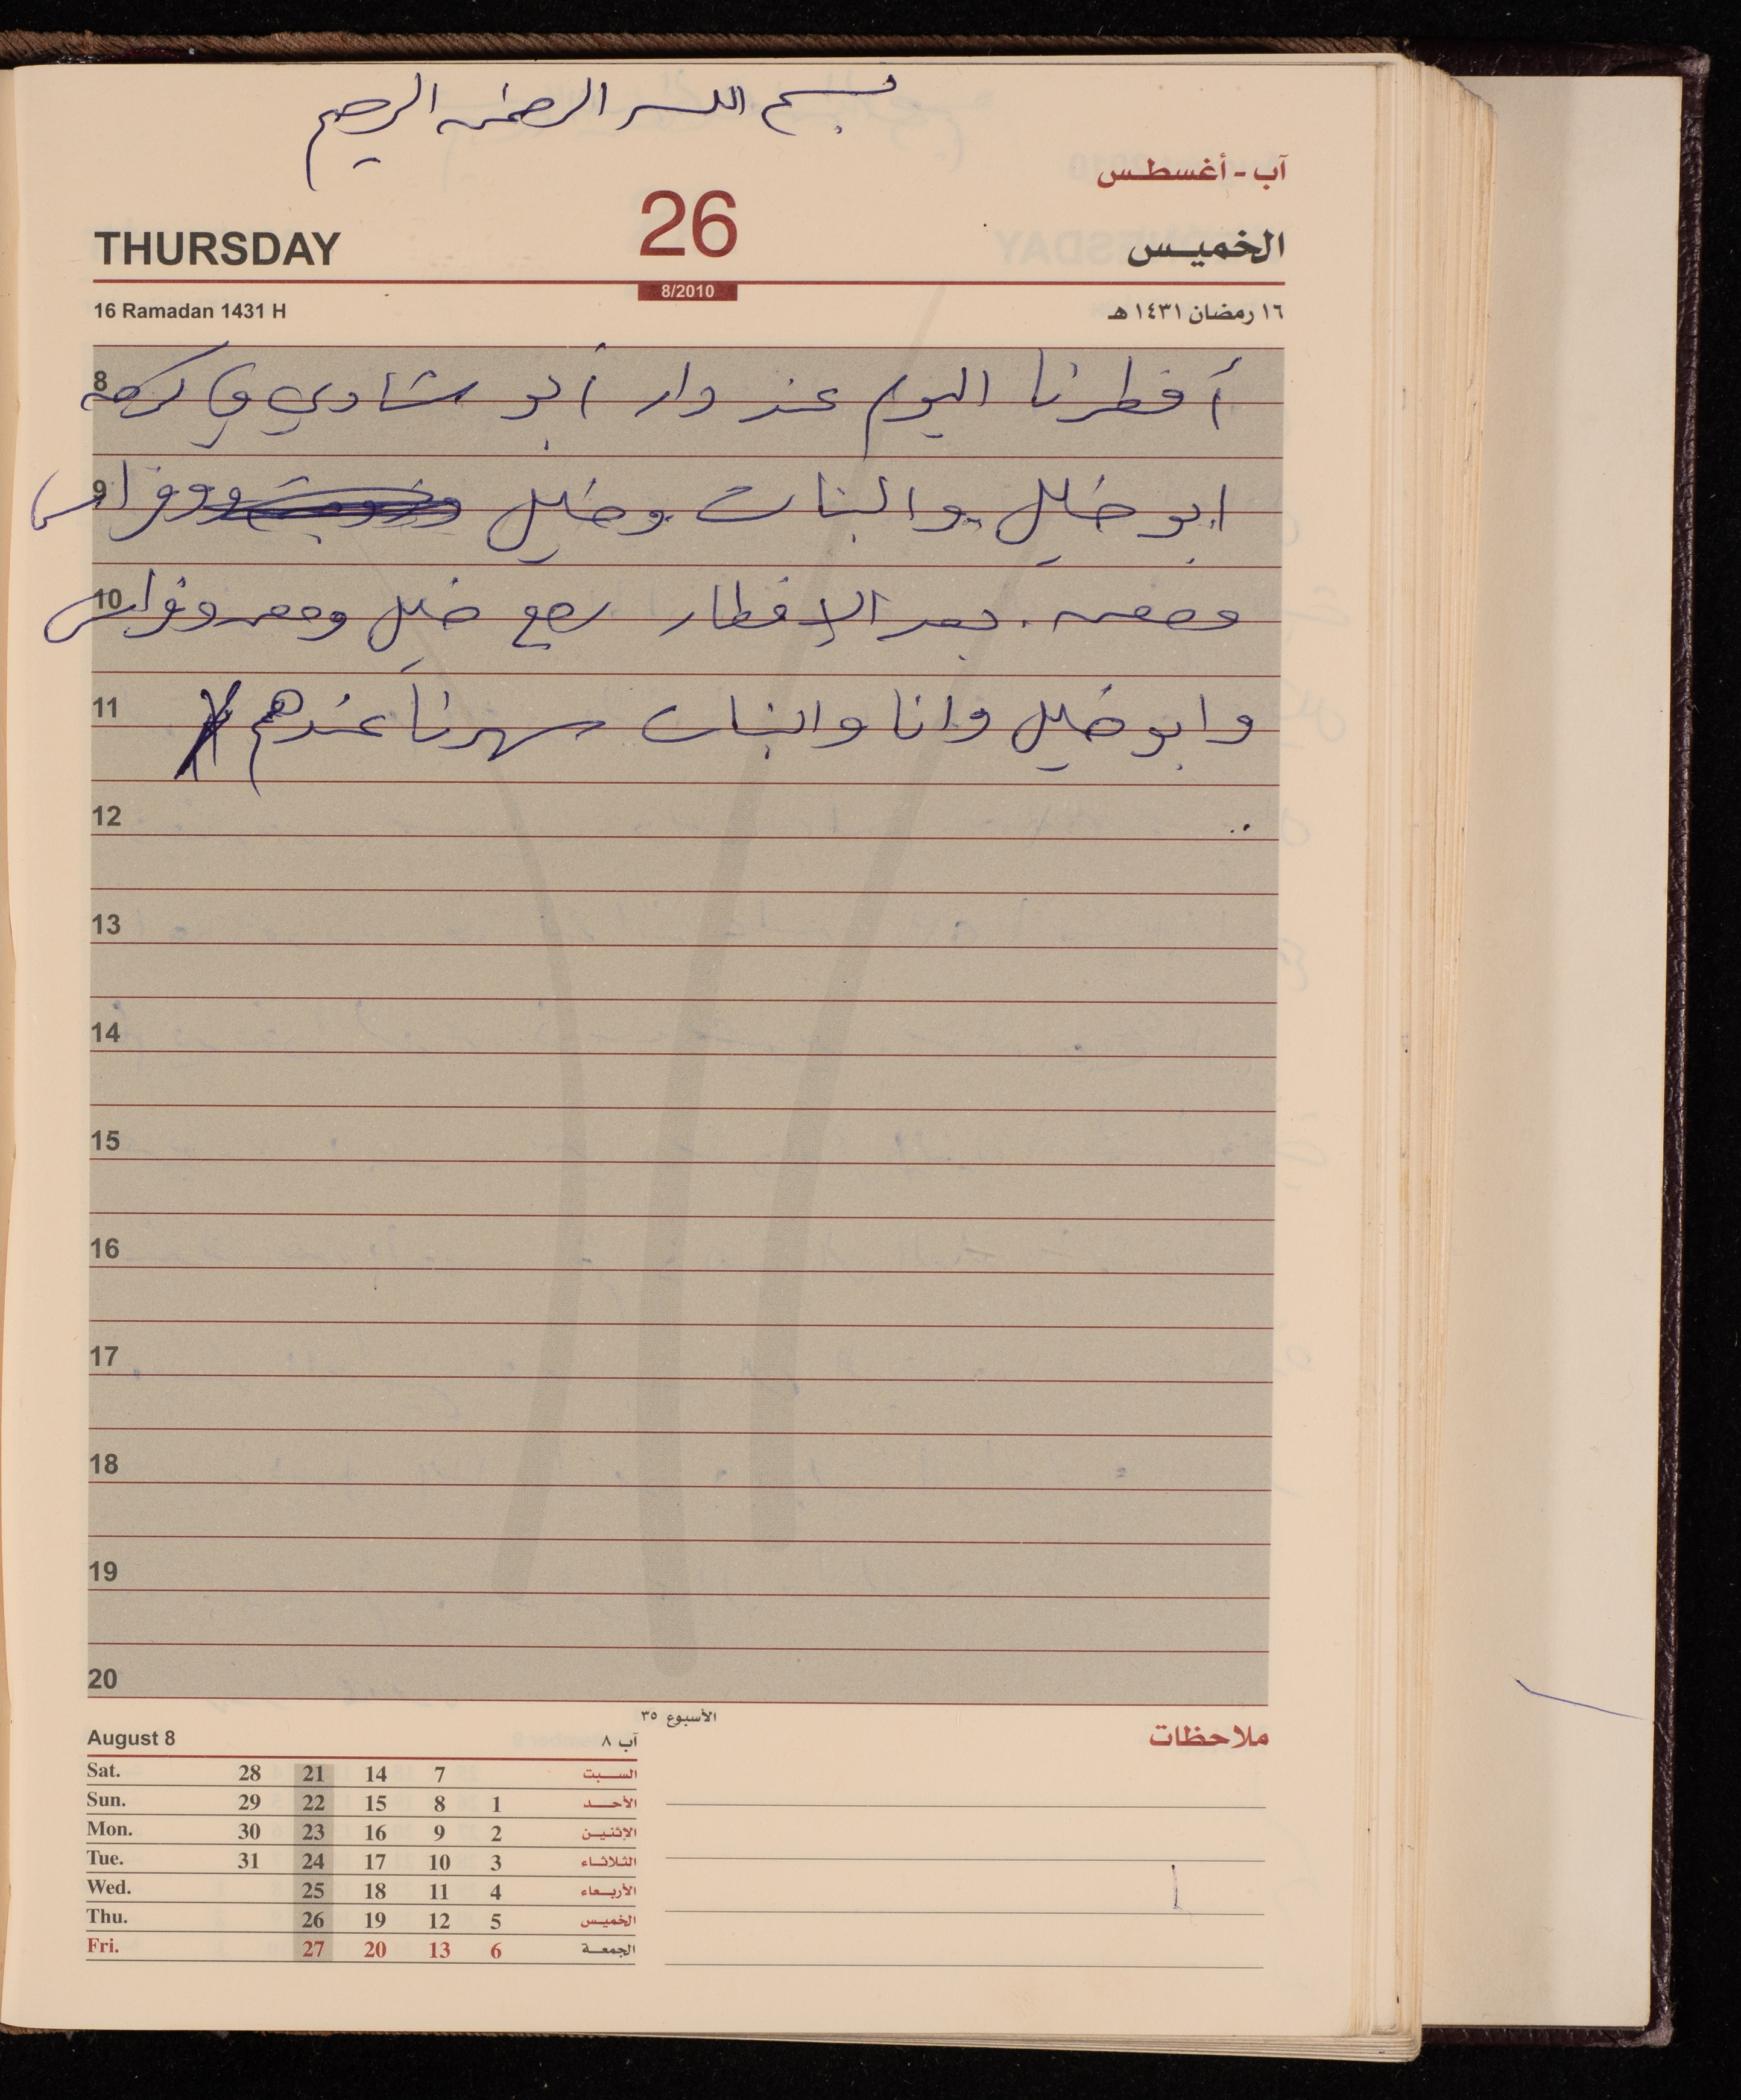 بسم الله الرحمن الرحيم
آب - أغسطس
THURSDAY 26 الخميس
8/2010
16 Ramadan 1431 H ١٦ رمضان ١٤٣١ هـ
8 أفطرنا اليوم عند دار أبو شادي في كرمة
9 ابو خليل والبنات وخليل وفراس
10 ومعن . بعد الإفطار رجع خليل ومعن وفراس
11 وابو خليل وانا والبنات سهرنا عندهم
12
13
14
15
16
17
18
19
20
الأسبوع ٣٥
ملاحظات
August 8 آب ٨
Sat. 28 21 14 7 السبت
Sun. 29 22 15 8 1 الأحد
Mon. 30 23 16 9 2 الإثنين
Tue. 31 24 17 10 3 الثلاثاء
Wed. 25 18 11 4 الأربعاء
Thu. 26 19 12 5 الخميس
Fri. 27 20 13 6 الجمعة